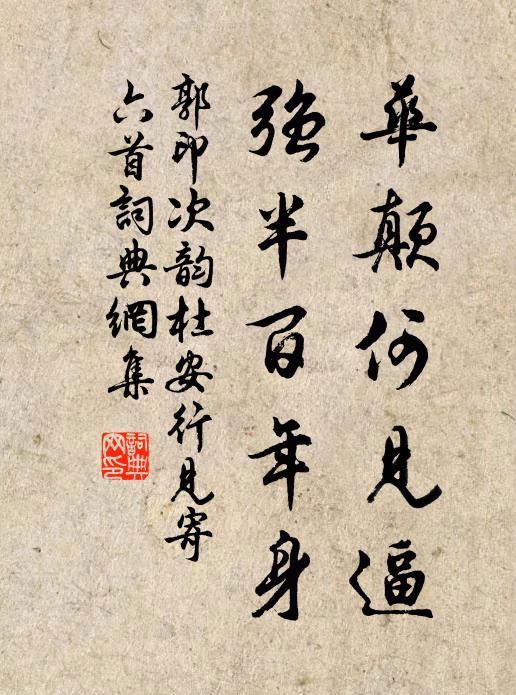 華顛何見逼
強半百年身
郭印次韵杜安行見寄
六首詞典網集
詞典
网印